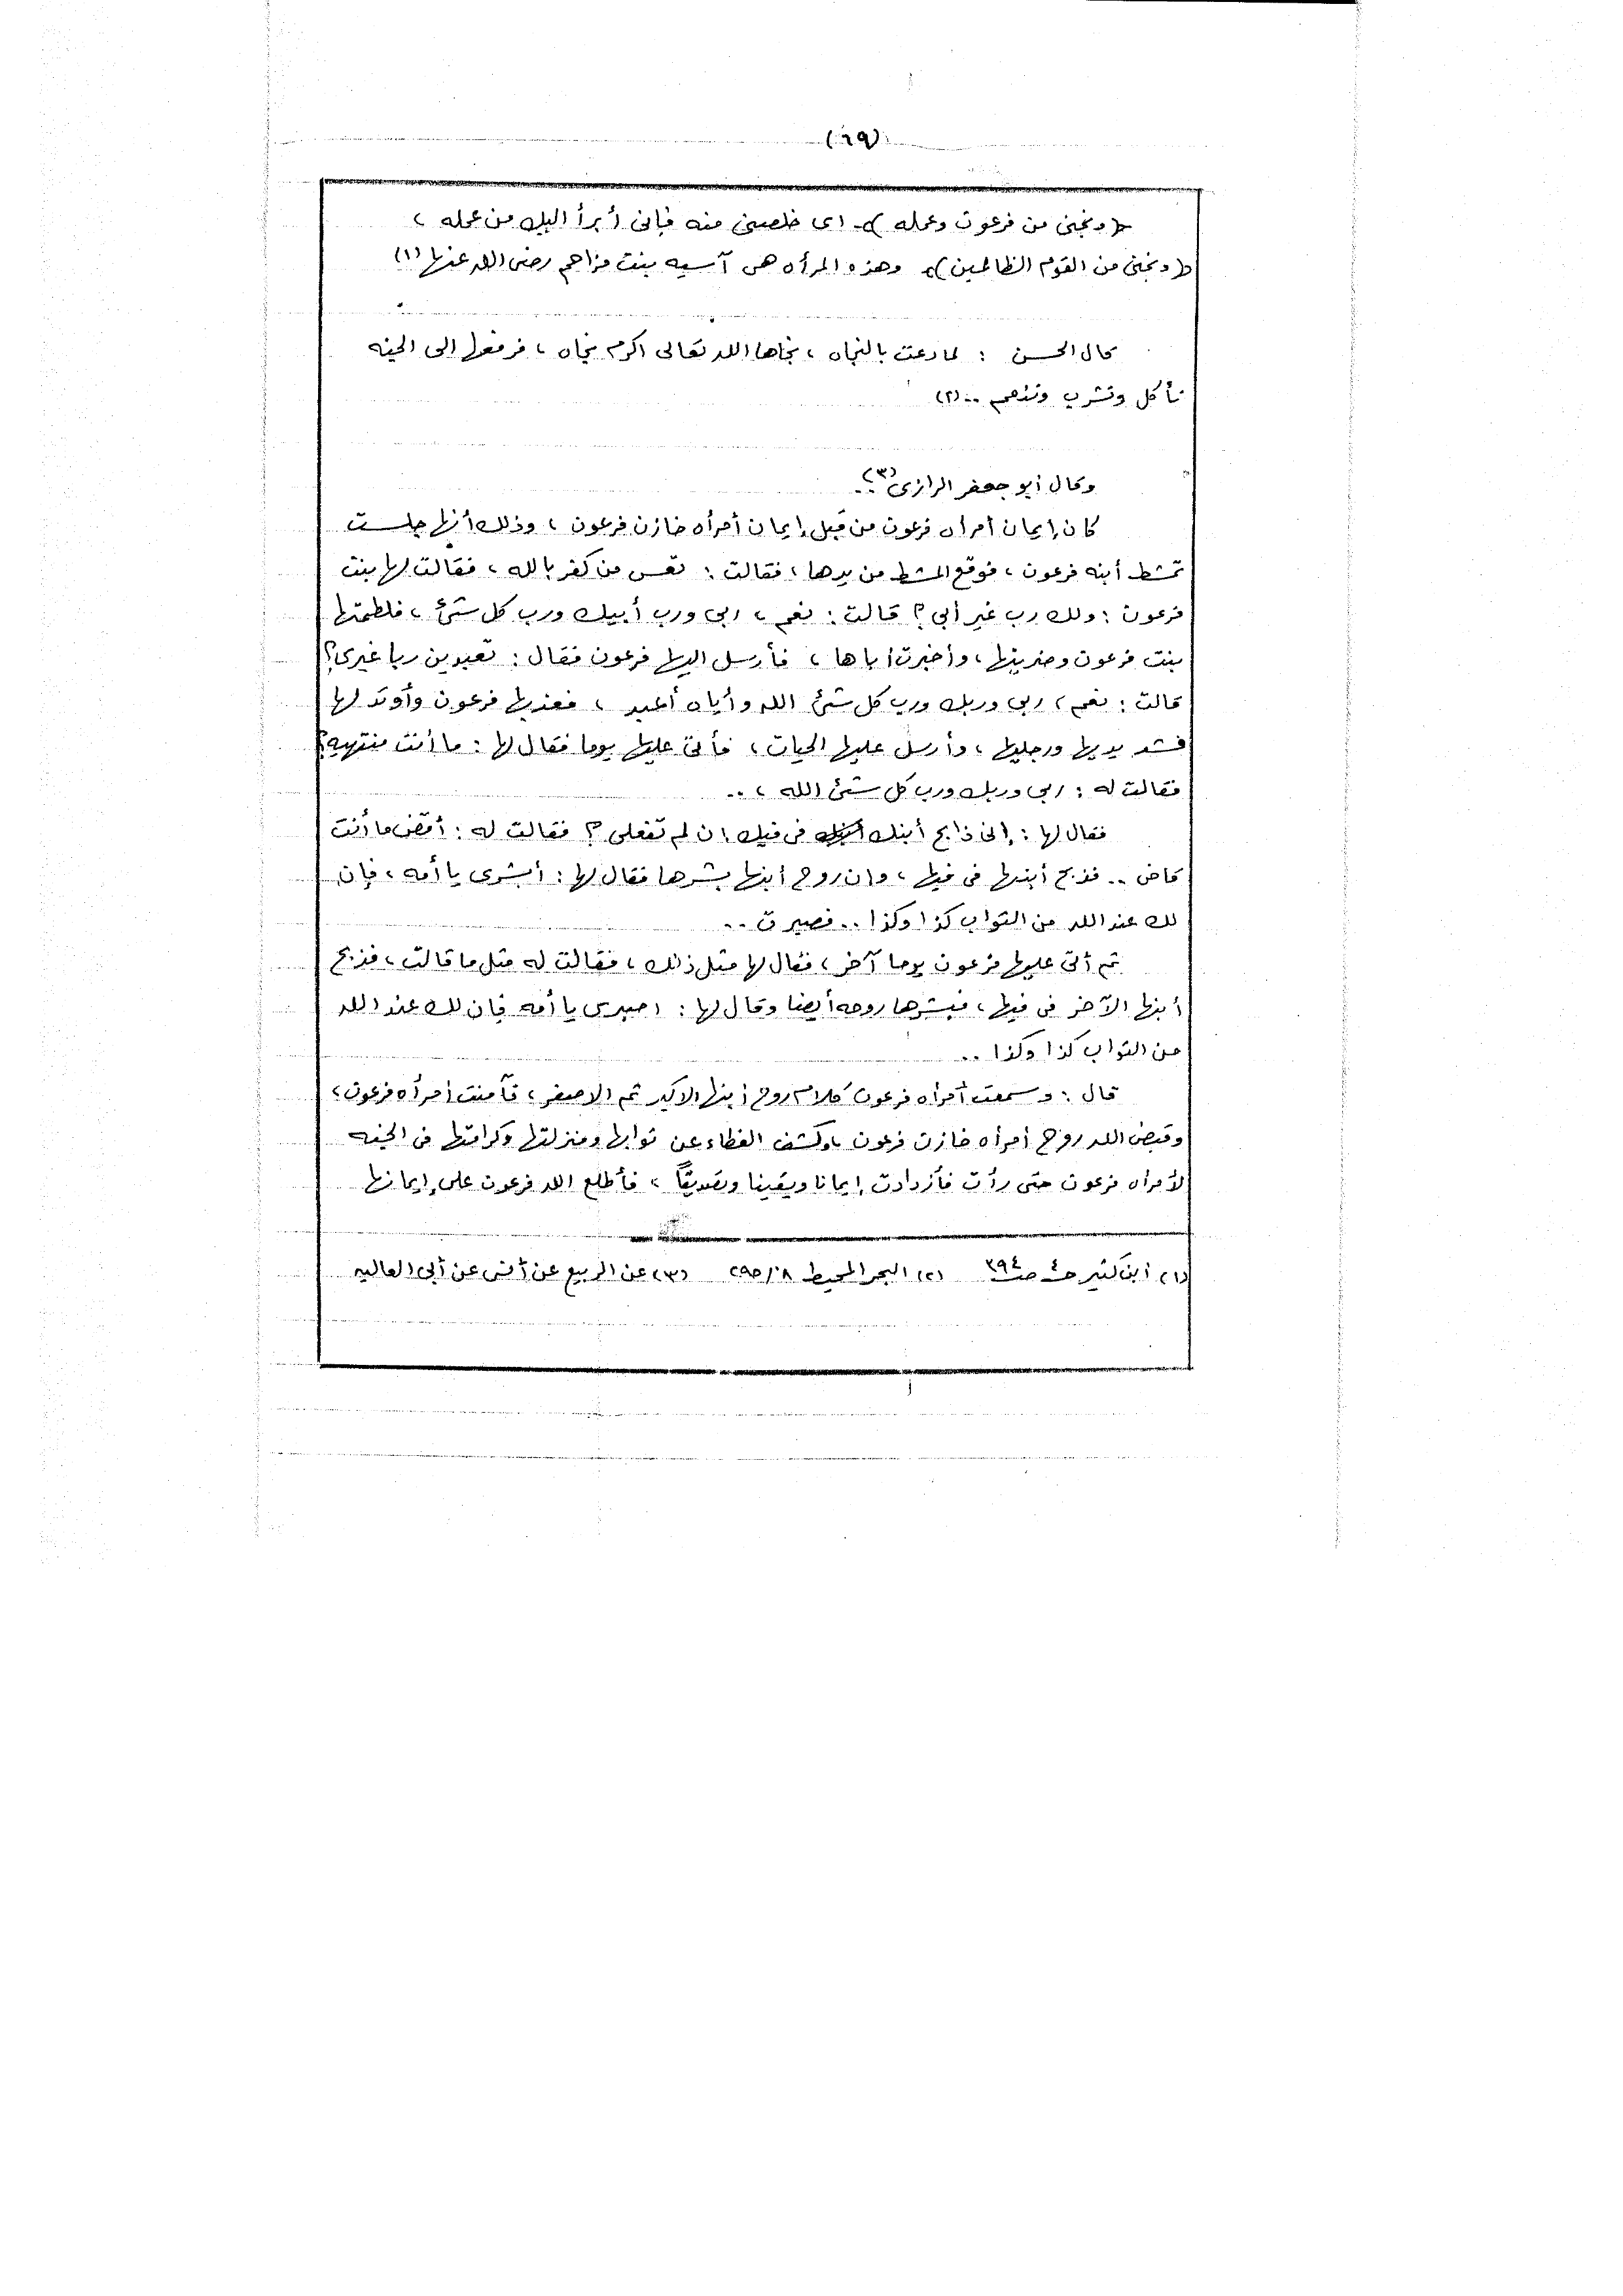 (٦٩)
﴿ ونجنى من فرعون وعمله ﴾. اى خلصنى منه فإنى أبرأ اليك من عمله ،
﴿ ونجنى من القوم الظالمين ﴾. وهذه المرأه هى آسيه بنت مزاحم رضى الله عنها (١)
قال الحسن : لما دعت بالنجاه ، نجاها الله تعالى اكرم نجاه ، فرفعها الى الجنه
تأكل وتشرب وتنعم .. (٢)
وقال أبو جعفر الرازى (٣) ..
كان إيمان أمرأه فرعون من قبل إيمان أمرأه خازن فرعون ، وذلك أنها جلست
تمشط أبنه فرعون ، فوقع المشط من يدها ، فقالت : تعس من كفر بالله ، فقالت لها بنت
فرعون : ولك رب غير أبى ؟ قالت : نعم ، ربى ورب أبيك ورب كل شئ ، فلطمتها
بنت فرعون وضربتها ، وأخبرت أباها ، فأرسل اليها فرعون فقال : تعبدين ربا غيرى ؟
قالت : نعم ، ربى وربك ورب كل شئ الله وأياه أعبد ، فعذبها فرعون وأوتد لها
فشد يديها ورجليها ، وأرسل عليها الحيات ، فأتى عليها يوما فقال لها : ما أنت منتهيه ؟
فقالت له : ربى وربك ورب كل شئ الله ، ..
فقال لها : إنى ذابح أبنك فى فيك إن لم تفعلى ؟ فقالت له : أقض ما أنت
قاض .. فذبح أبنها فى فيها ، وان روح أبنها بشرها فقال لها : أبشرى يا أمه ، فإن
لك عند الله من الثواب كذا وكذا .. فصبرت ..
ثم أتى عليها فرعون يوما آخر ، فقال لها مثل ذلك ، فقالت له مثل ما قالت ، فذبح
أبنها الآخر فى فيها ، فبشرها روحه أيضا وقال لها : اصبرى يا أمه فإن لك عند الله
من الثواب كذا وكذا ..
قال : وسمعت أمرأه فرعون كلام روح أبنها الاكبر ثم الاصغر ، فآمنت أمرأه فرعون ،
وقبض الله روح أمرأه خازن فرعون ، وكشف الغطاء عن ثوابها ومنزلتها وكرامتها فى الجنه
لأمرأه فرعون حتى رأت فأزدادت إيمانا ويقينا وتصديقاً ، فأطلع الله فرعون على إيمانها
(١) أبن كثير حـ ٤ صـ ٣٩٤ (٢) البحر المحيط ٨/٢٩٥ (٣) عن الربيع عن أنس عن أبى العاليه